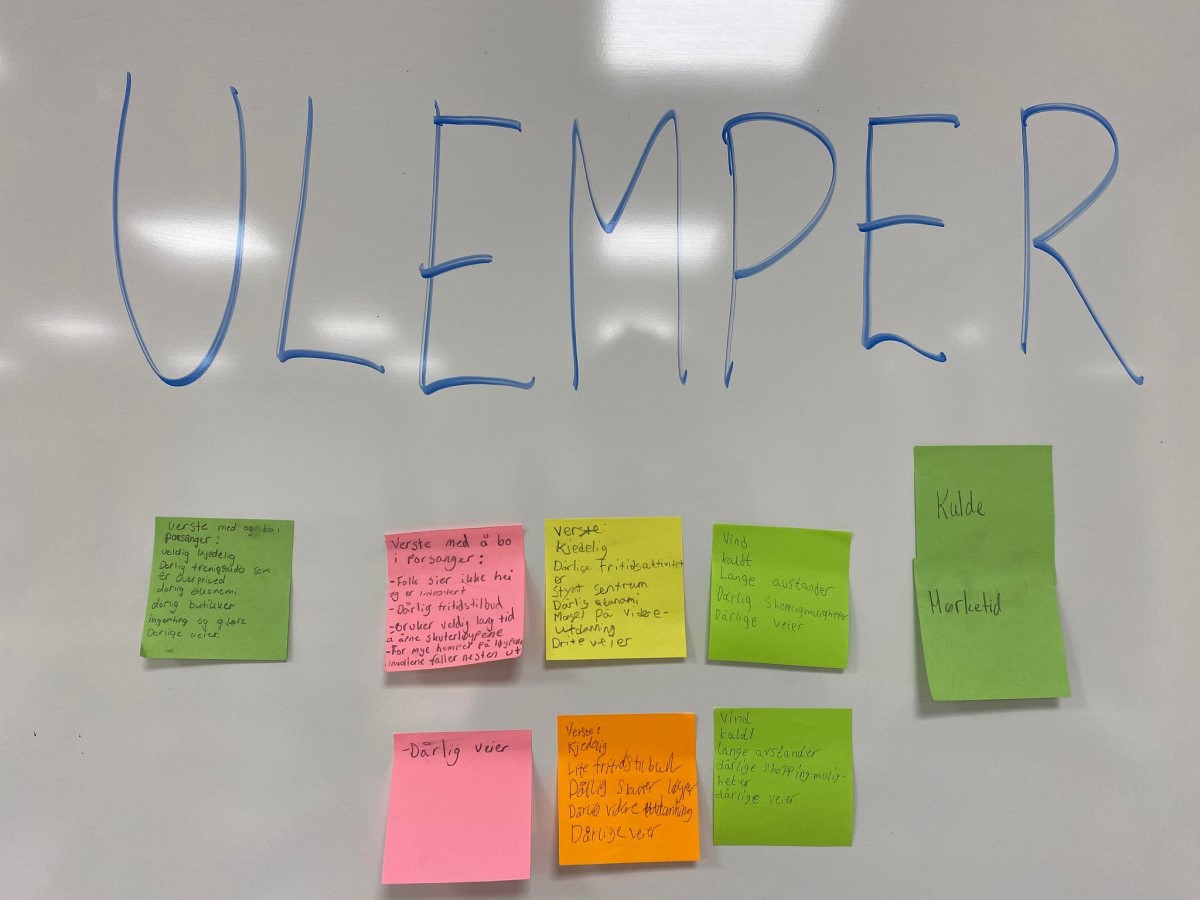 ULEMPER
Verste med og bo i
Porsanger:
veldig kjedelig
Dårlig trenigsted som
er overpriced
dårlig økonomi
dårlig butikker
ingenting og gjøre
Dårlige veier.
Verste med å bo
i Porsanger:
-Folk sier ikke hei
og er introvert
-Dårlig fritidstilbud
-Bruker veldig lang tid
å åpne skuterløypene
-For mye homper på løypene
innvollene faller nesten ut
Verste:
Kjedelig
Dårlige Fritidsaktivitet
er
Stygt sentrum
Dårlig økonomi
Mangel på videre-
utdanning
Drite veier
Vind
kaldt
Lange avstander
Dårlig shoppingmuligheter
Dårlige veier
Kulde
Mørketid
-Dårlig veier
Verste:
Kjedelig
Lite fritidstilbud
Dårlig løyper
Dårlig vidre utdanning
Dårlige veier
Vind
kaldt
lange avstander
dårlige shoppingmulig-
heter
dårlige veier